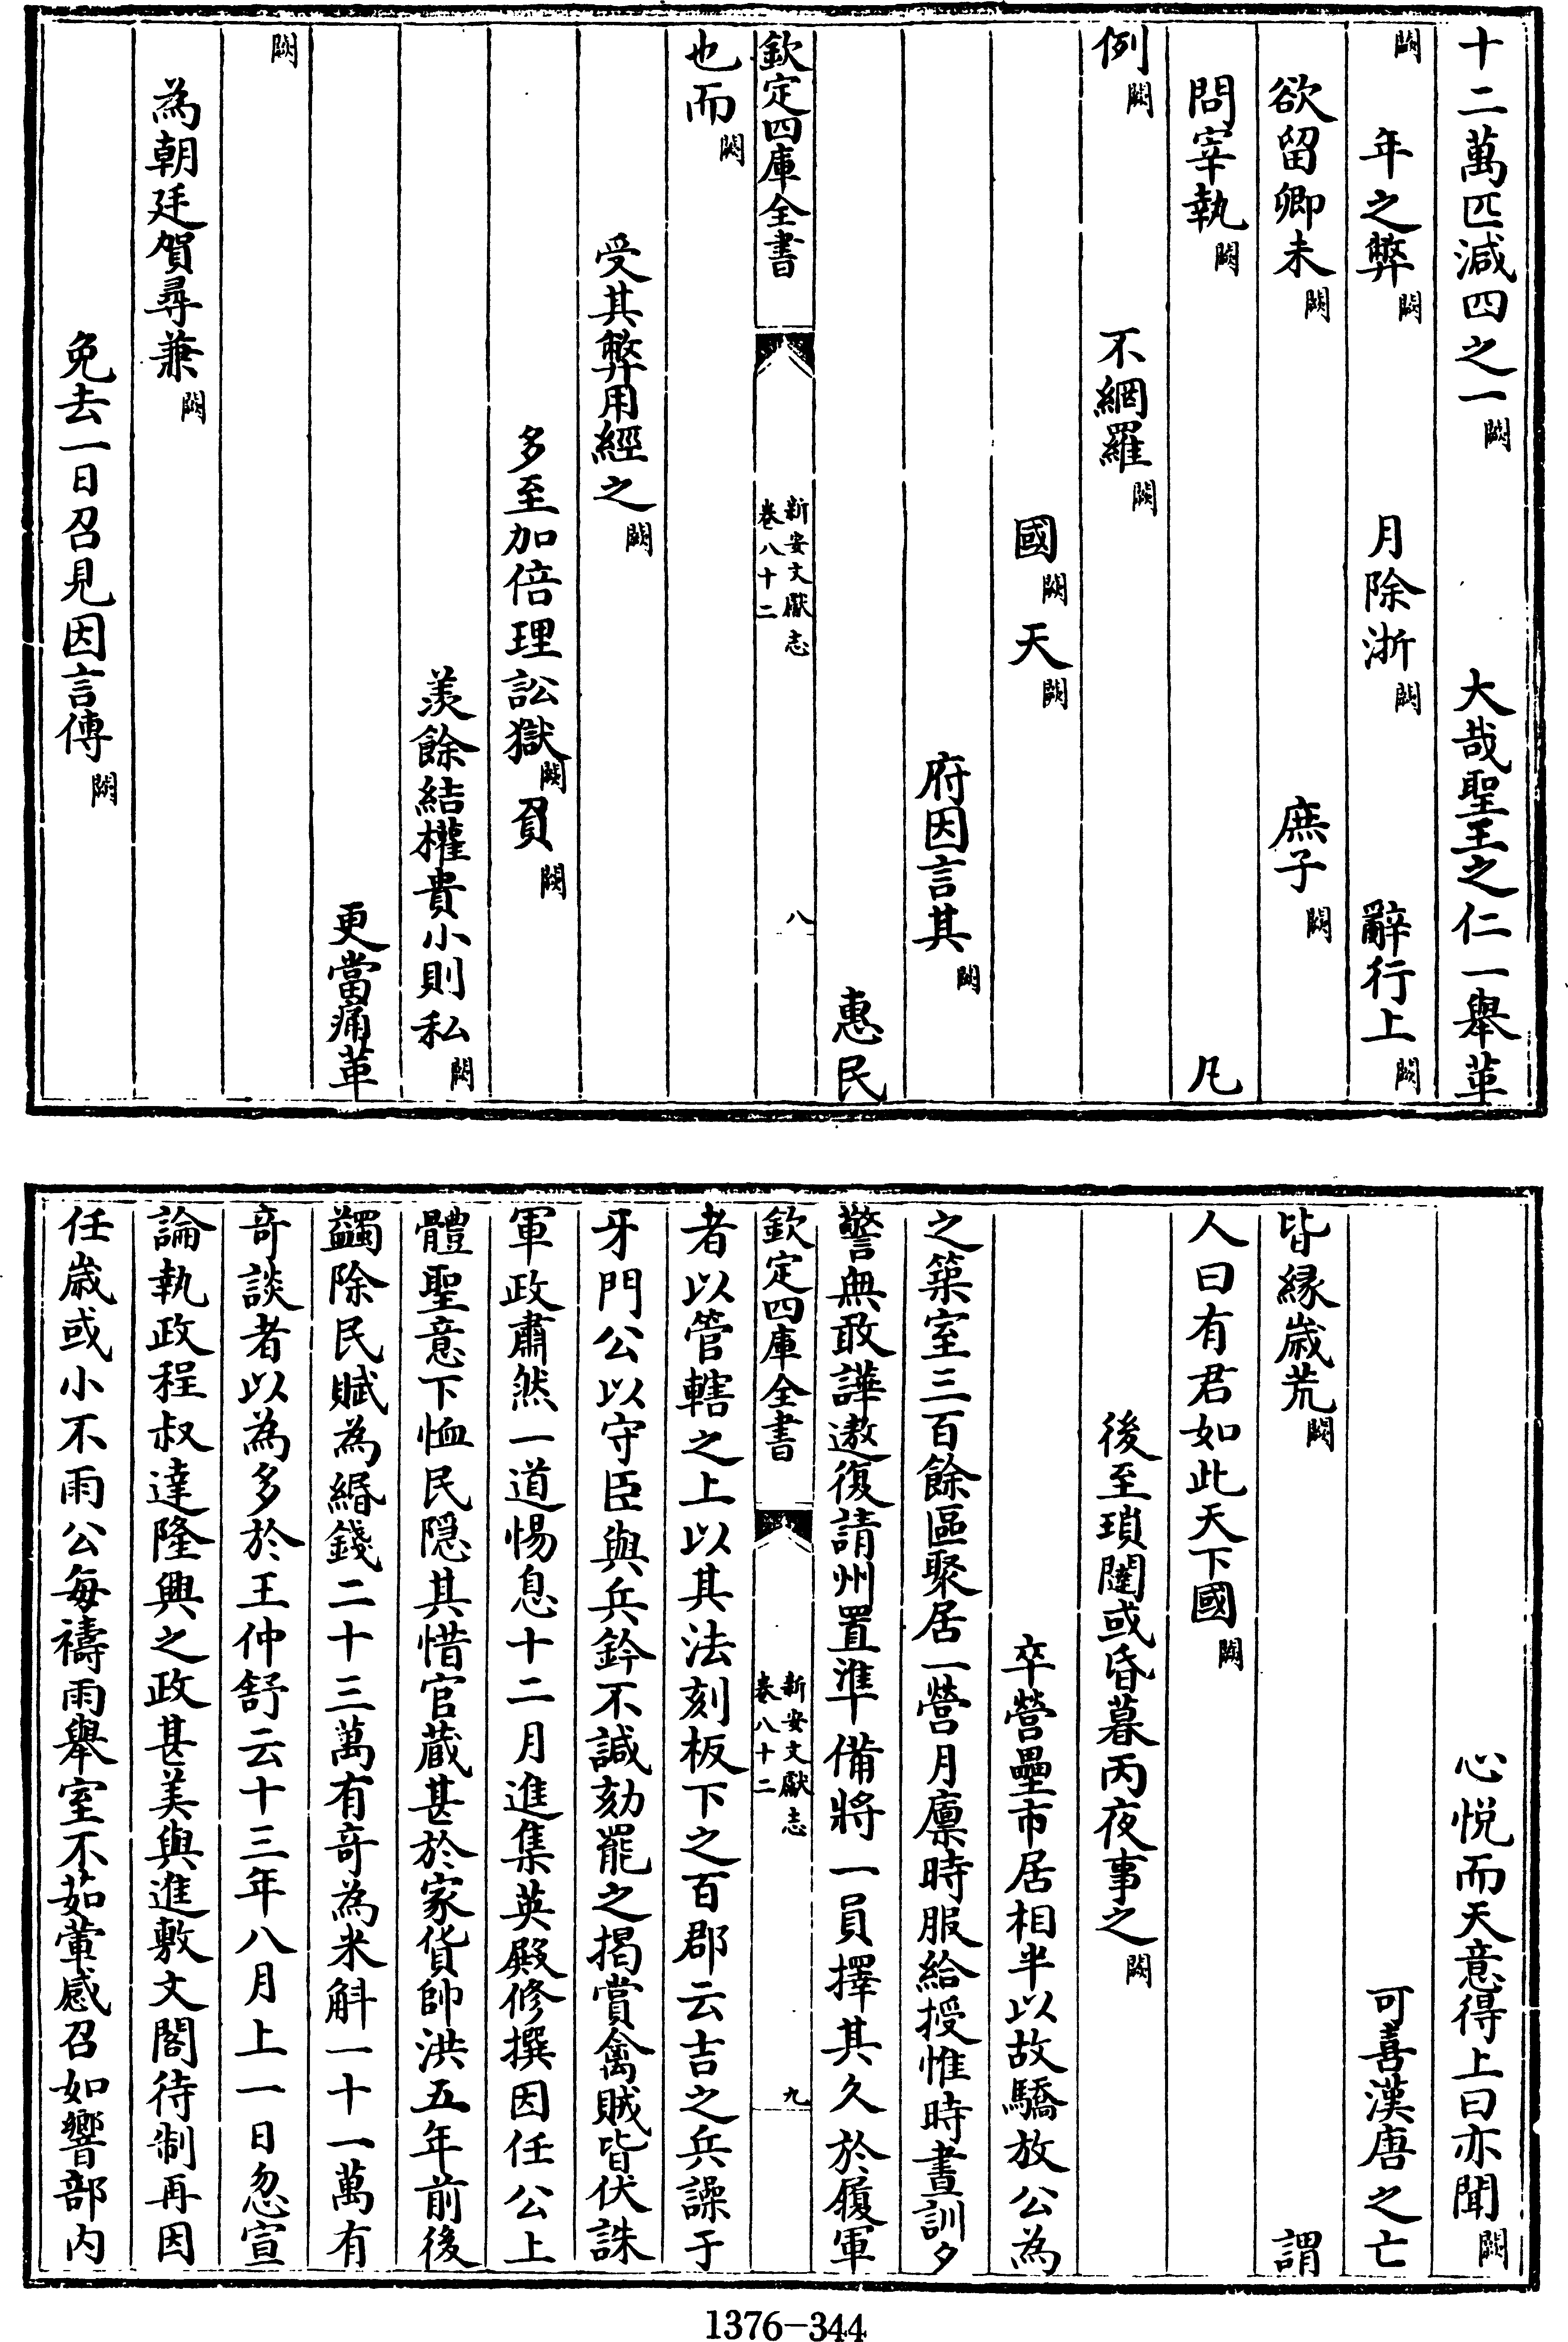 十二萬匹減四之一闕大哉聖王之仁一舉革
闕年之弊闕月除浙闕辭行上闕
欲留卿未闕庶子闕
問宰執闕凡
例闕不網羅闕
國闕天闕
府因言其闕
惠民
欽定四庫全書
新安文獻志
卷八十二
八
也而闕
受其弊用經之闕
多至加倍理訟獄闕貟闕
羨餘結權貴小則私闕
更當痛革
闕
為朝廷賀尋兼闕
免去一日召見因言傳闕
心悅而天意得上曰亦聞闕
可喜漢唐之亡
皆緣歲荒闕謂
人曰有君如此天下國闕
後至瑣闥或昏暮丙夜事之闕
卒營壘市居相半以故驕放公為
之築室三百餘區聚居一營月廩時服給授惟時晝訓夕
警無敢譁遨復請州置準備將一員擇其久於履軍
欽定四庫全書
新安文獻志
卷八十二
九
者以管轄之上以其法刻板下之百郡云吉之兵譟于
牙門公以守臣與兵鈐不諴劾罷之揭賞禽賊皆伏誅
軍政肅然一道惕息十二月進集英殿修撰因任公上
體聖意下恤民隱其惜官藏甚於家貨帥洪五年前後
蠲除民賦為緡錢二十三萬有竒為米斛一十一萬有
竒談者以為多於王仲舒云十三年八月上一日忽宣
論執政程叔達隆興之政甚美與進敷文閣待制再因
任歲或小不雨公每禱雨舉室不茹葷感召如響部内
1376-344